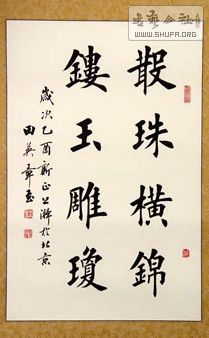 散珠橫錦
鏤玉雕瓊
歲次乙酉新正上澣於北京
田英章書
書藝公社
WWW.SHUFA.ORG